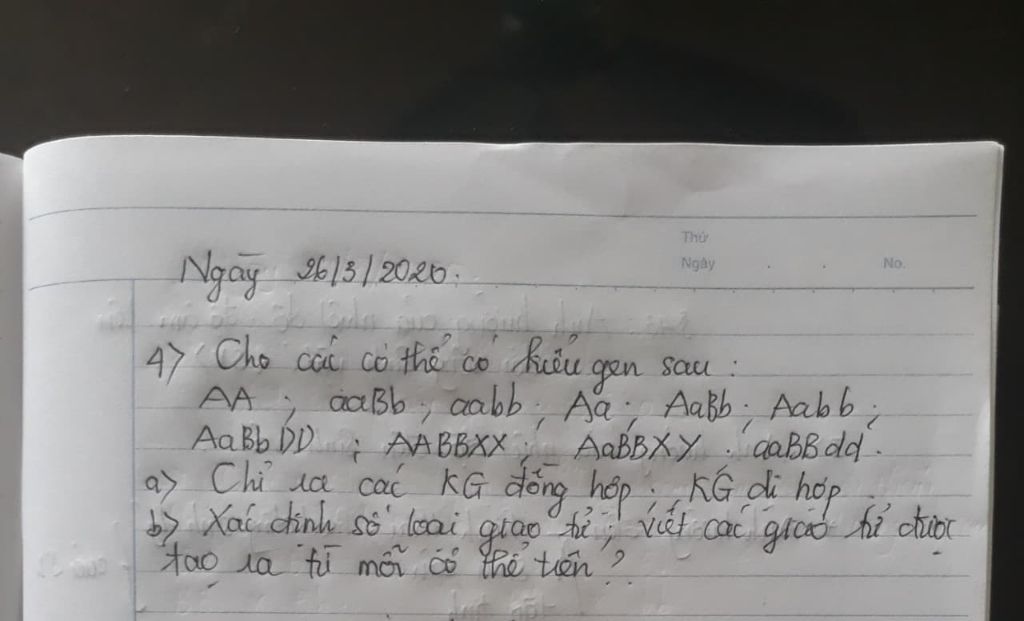 Thứ
Ngày . . No.
Ngày 26/3/2020.
4> Cho các cơ thể có kiểu gen sau :
AA ; aaBb ; aabb ; Aa ; AaBb ; Aabb ;
AaBbDD ; AABBXX ; AaBBXY . aaBBdd .
a> Chỉ ra các KG đồng hợp . KG dị hợp
b> Xác định số loại giao tử ; viết các giao tử được
tạo ra từ mỗi cơ thể trên ?